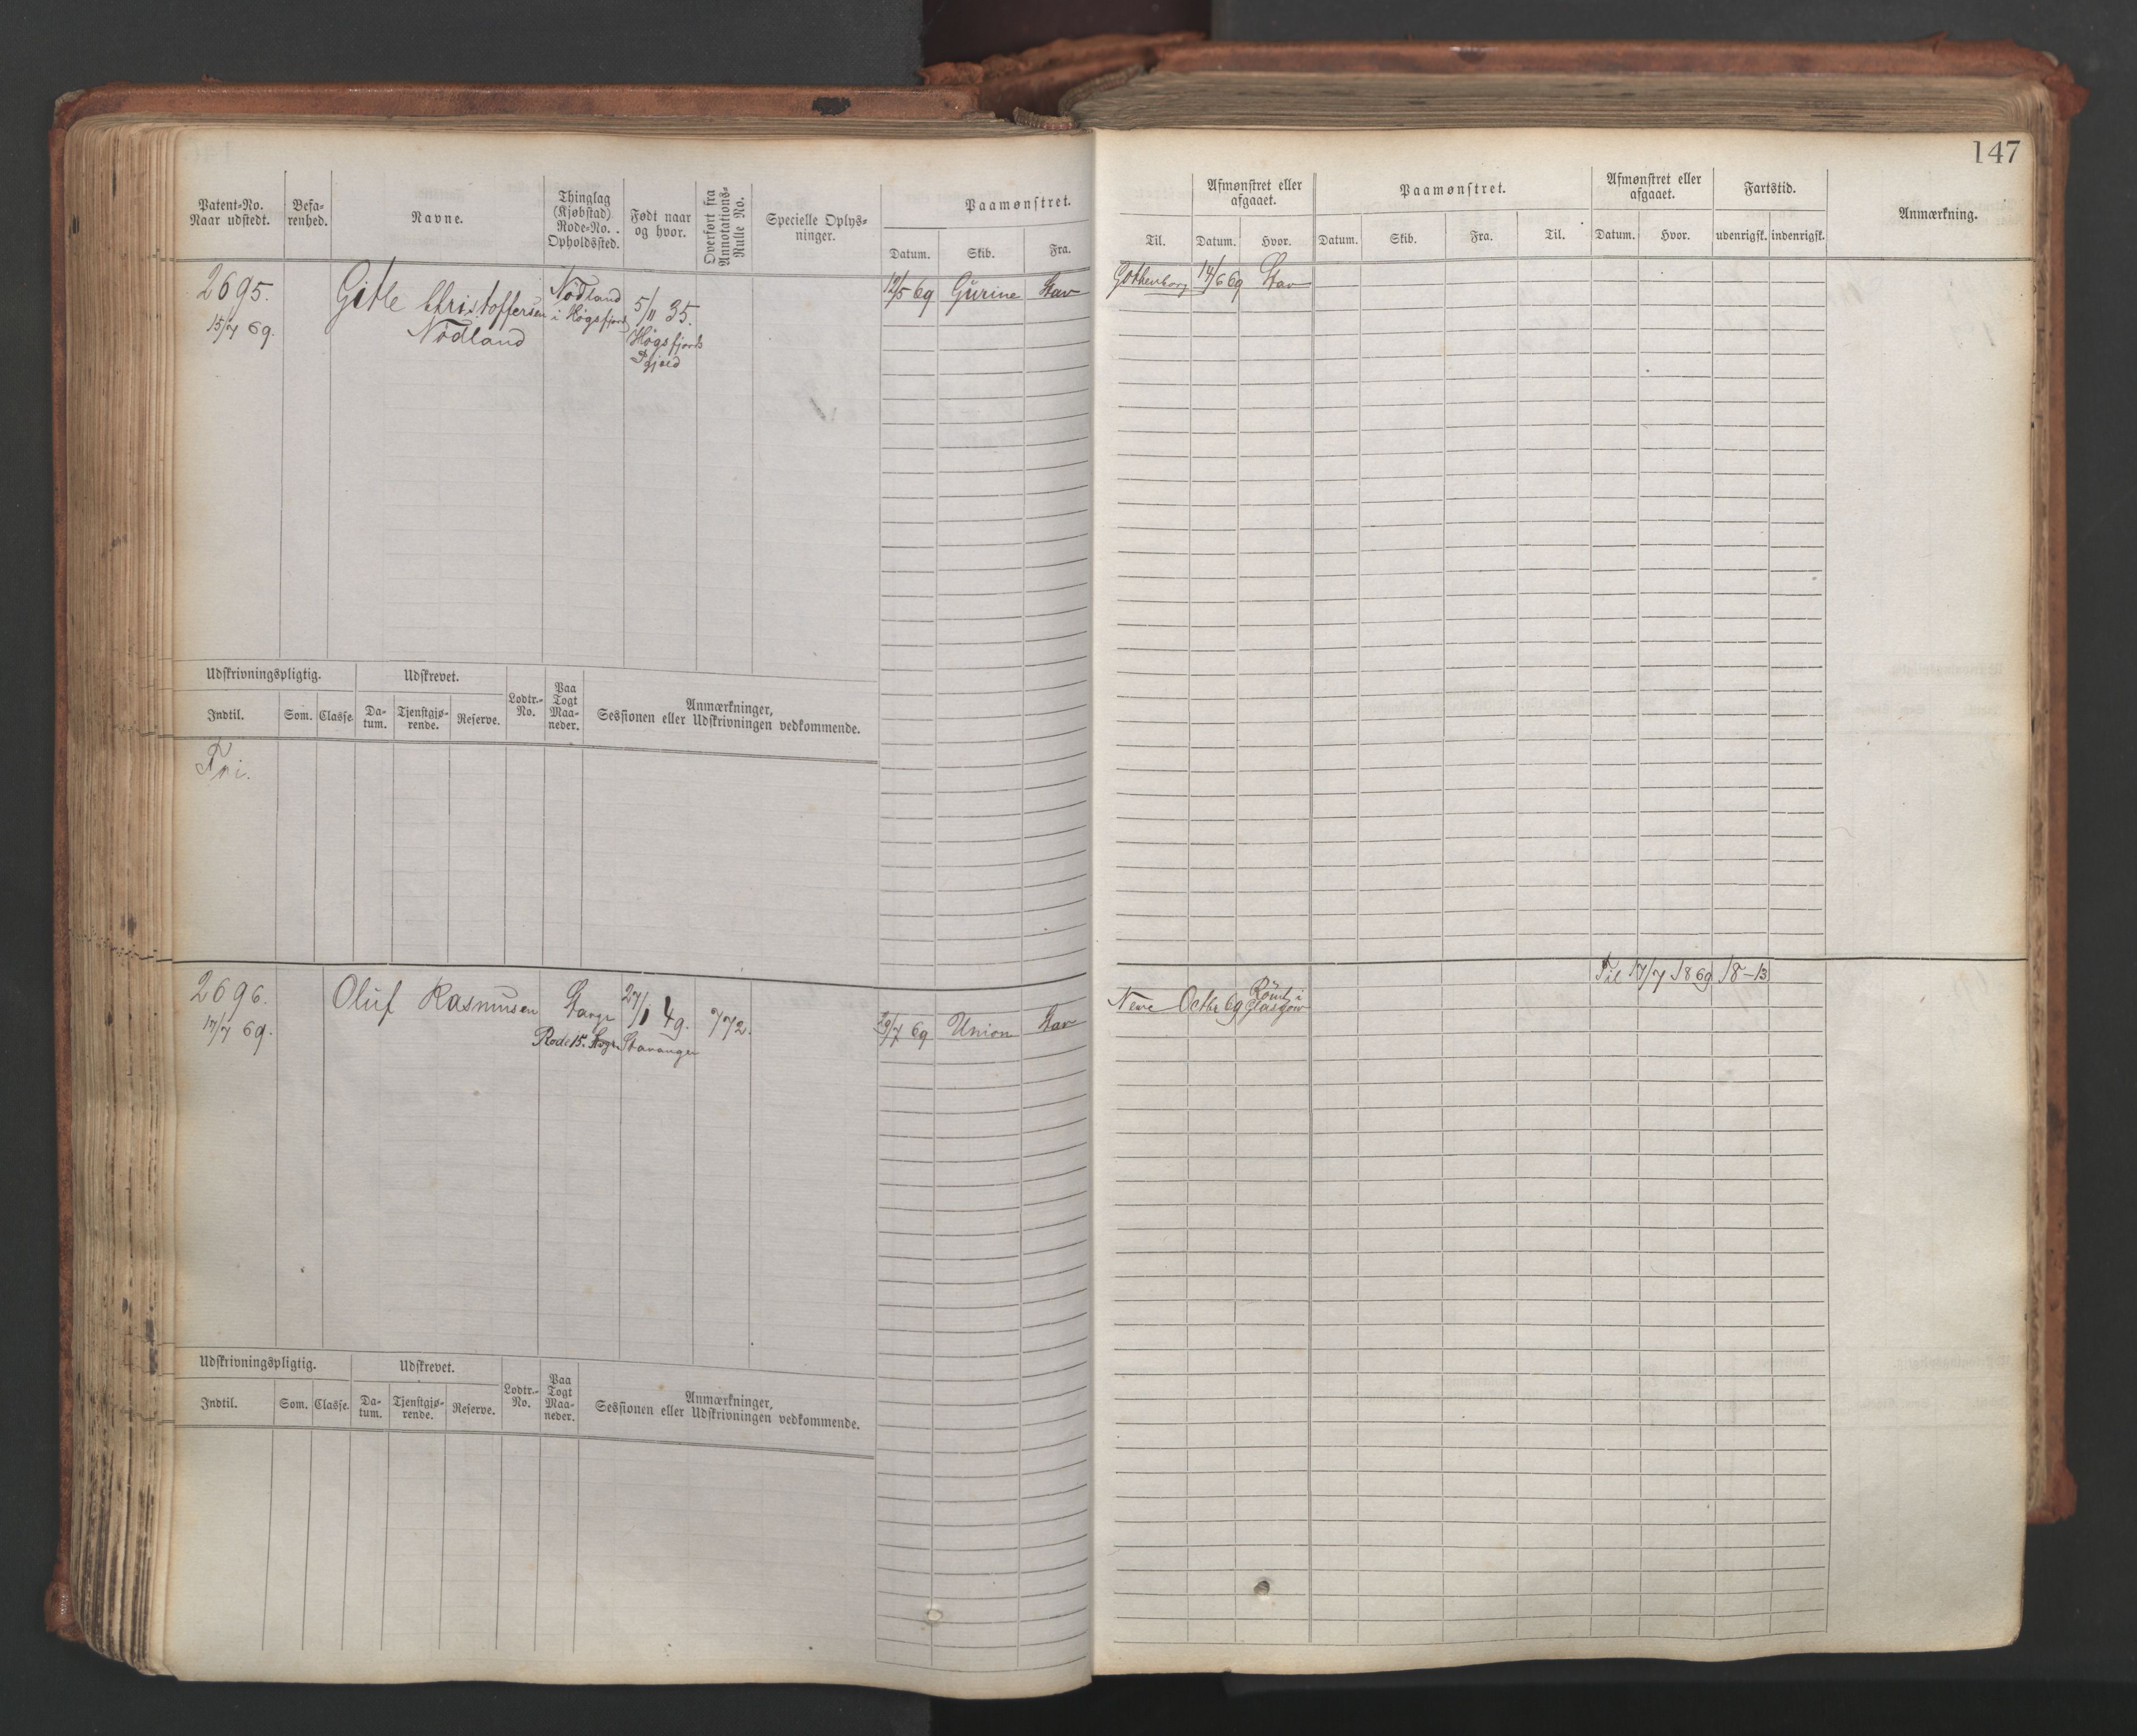 147
Patent-No.
Naar udstedt.
Befa-
renhed.
Navne.
Thinglag
(Kjøbstad)
Rode-No.
Opholdssted.
Født naar
og hvor.
Overført fra
Annotations-
Rulle No.
Specielle Oplys-
ninger.
Paamønstret.
Datum. Skib. Fra.
Til.
Afmønstret eller
afgaaet.
Datum. Hvor.
Paamønstret.
Datum. Skib. Fra. Til.
Afmønstret eller
afgaaet.
Datum. Hvor.
Fartstid.
udenrigsk. indenrigsk.
Anmærkning.
2695.
15/7 69.
Gitle Christoffersen
Nödland
Nödland
i Høgsfjord
5/11 35.
Høgsfjords
Pgjæld
12/5 69 Gurine Stav
Gothenborg 14/6 69 Stav
Udskrivningspligtig.
Indtil. Som. Classe.
Udskrevet.
Da-
tum.
Tjenstgjø-
rende.
Reserve.
Lodtr.-
No.
Paa
Togt
Maa-
neder.
Anmærkninger,
Sessionen eller Udskrivningen vedkommende.
Fri.
Til 17/7 1869 18-13
2696.
17/7 69.
Oluf Rasmusen
Stavgr
Rode 15.
27/1 49.
Stavanger
772.
29/7 69 Union Stav
Octbr 69 Römt i
Glasgow
Udskrivningspligtig.
Indtil. Som. Classe.
Udskrevet.
Da-
tum.
Tjenstgjø-
rende.
Reserve.
Lodtr.-
No.
Paa
Togt
Maa-
neder.
Anmærkninger,
Sessionen eller Udskrivningen vedkommende.